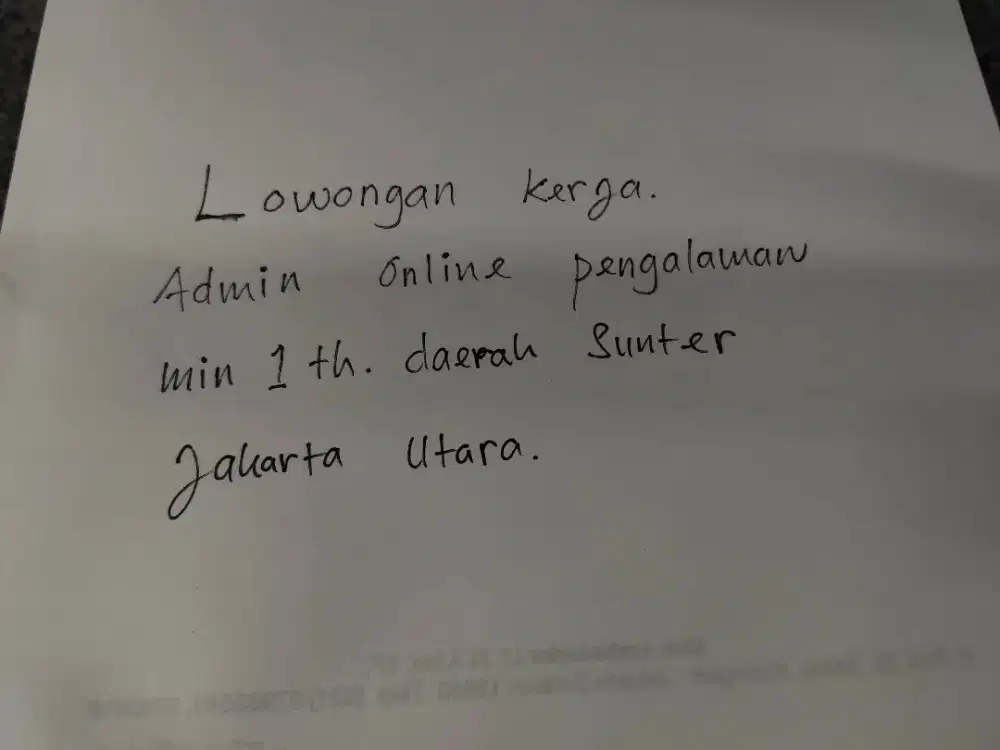 Lowongan kerja.
Admin online pengalaman
min 1 th. daerah Sunter
Jakarta Utara.